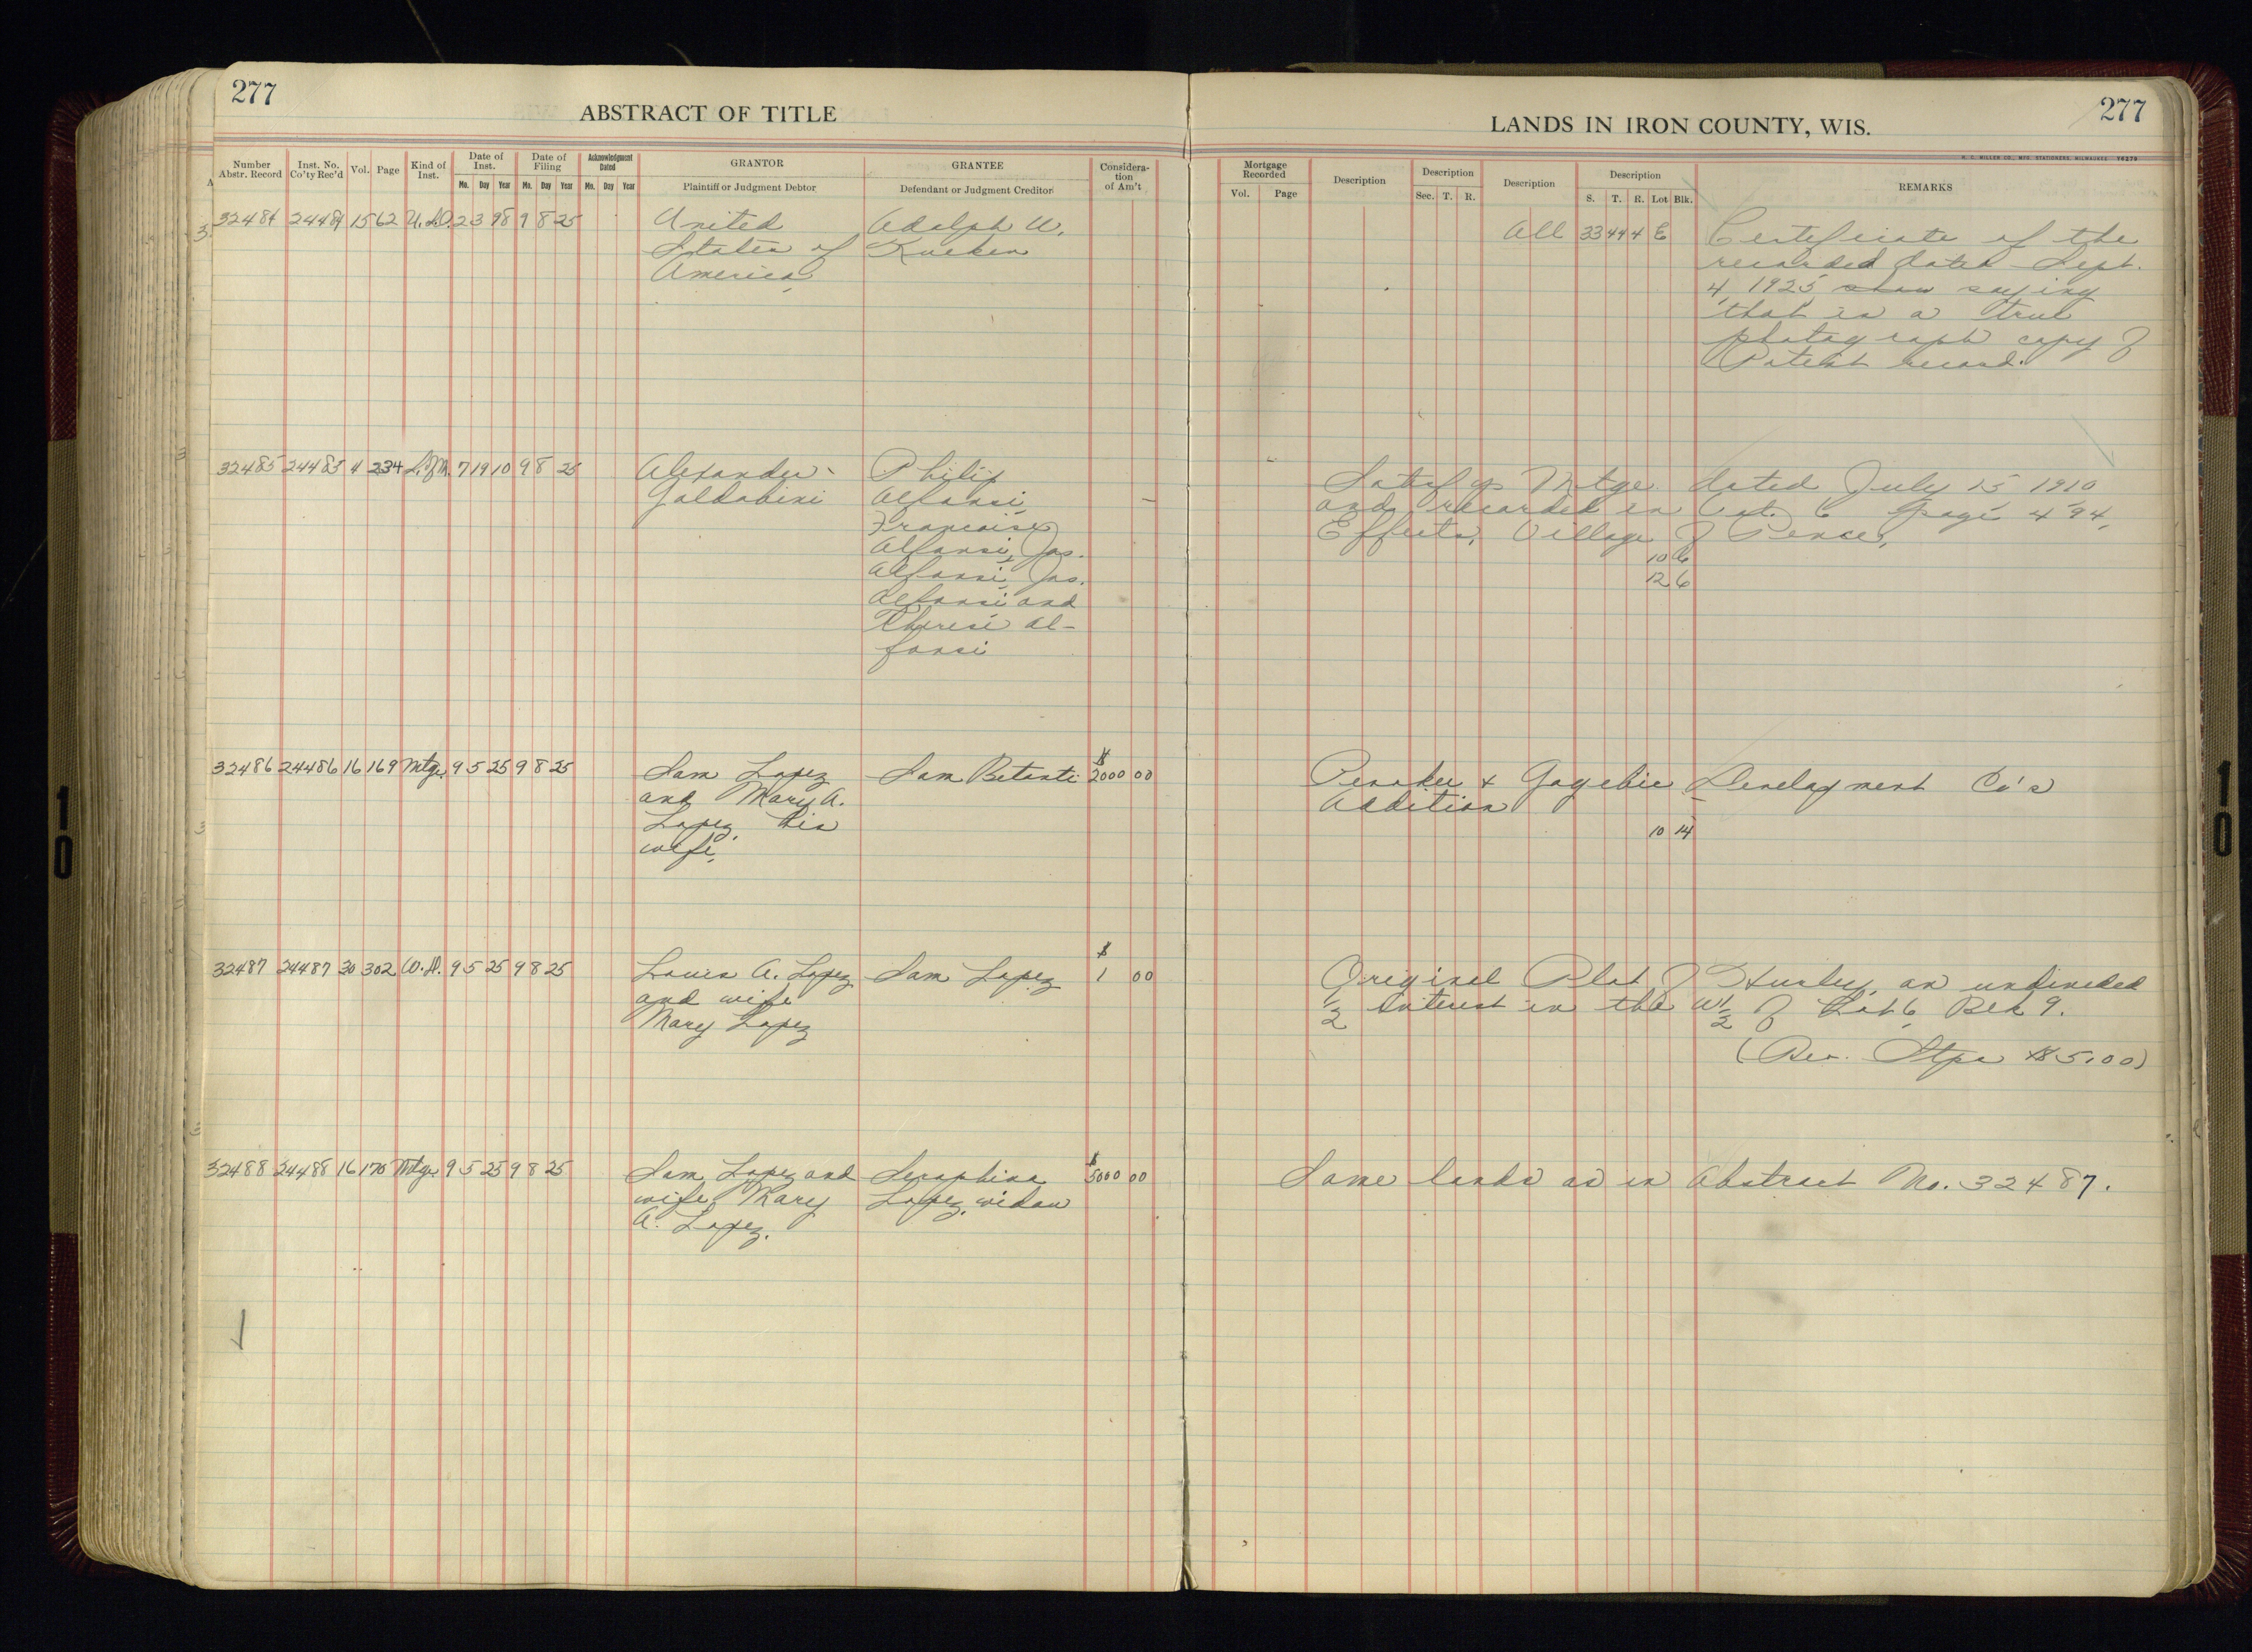 277
ABSTRACT OF TITLE
LANDS IN IRON COUNTY, WIS.
277
H. C. MILLER CO., MFG. STATIONERS, MILWAUKEE 16270
Number Abstr. Record | Inst. No. Co'ty Rec'd | Vol. | Page | Kind of Inst. | Date of Inst. Mo. Day Year | Date of Filing Mo. Day Year | Acknowledgment Dated Mo. Day Year | GRANTOR Plaintiff or Judgment Debtor | GRANTEE Defendant or Judgment Creditor | Consideration of Am't | Mortgage Recorded Vol. Page | Description | Description Sec. T. R. | Description | Description S. T. R. Lot Blk. | REMARKS
32484 24484 15 62 U.S.D. 2 3 98 9 8 25 United Adolph W. All 33 44 4 E Certificate of the
States of Kuehen recorded dated Sept.
America, 4, 1925 show saying
that is a true
photograph copy of
Patent record.
32485 24485 4 234 S.of M. 7 19 10 9 8 25 Alexander Philip — Satisfys Mtge. dated July 15 1910
Galdabini Alfonsi, and recorded in Vol. 6 page 494.
Francaise Effects, Village of Pence,
Alfonsi, Jos. 10 6
Alfonsi, Jos. 12 6
Alfonsi and
Therese Al-
fonsi
32486 24486 16 169 Mtge. 9 5 25 9 8 25 Sam Lopez Sam Betanti $2000 00 Penokee & Gogebic Development Co's
and Mary A. Addition
Lopez, his 10 14
wife,
32487 24487 30 302 W.D. 9 5 25 9 8 25 Louis A. Lopez Sam Lopez $1 00 Original Plat of Hurley, an undivided
and wife 1/2 interest in the W 1/2 of Lot 6, Blk 9.
Mary Lopez
(Rev. Stps $5.00)
32488 24488 16 170 Mtge 9 5 25 9 8 25 Sam Lopez and Seraphina $5000 00 Same lands as in Abstract No. 32487.
wife Mary Lopez, widow
A. Lopez.
10
10